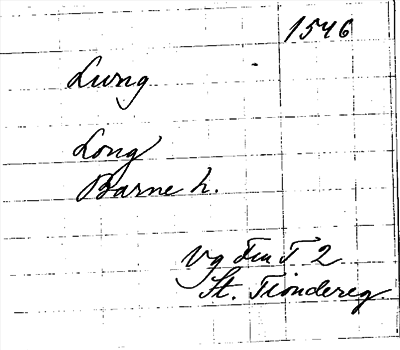 1546
Lung
Long
Barne h.
Vg Fin T 2
St. Tiondereg.